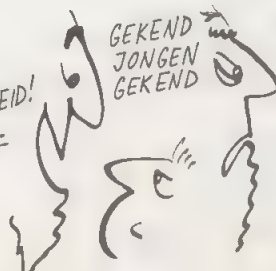 EID!
GEKEND
JONGEN
GEKEND